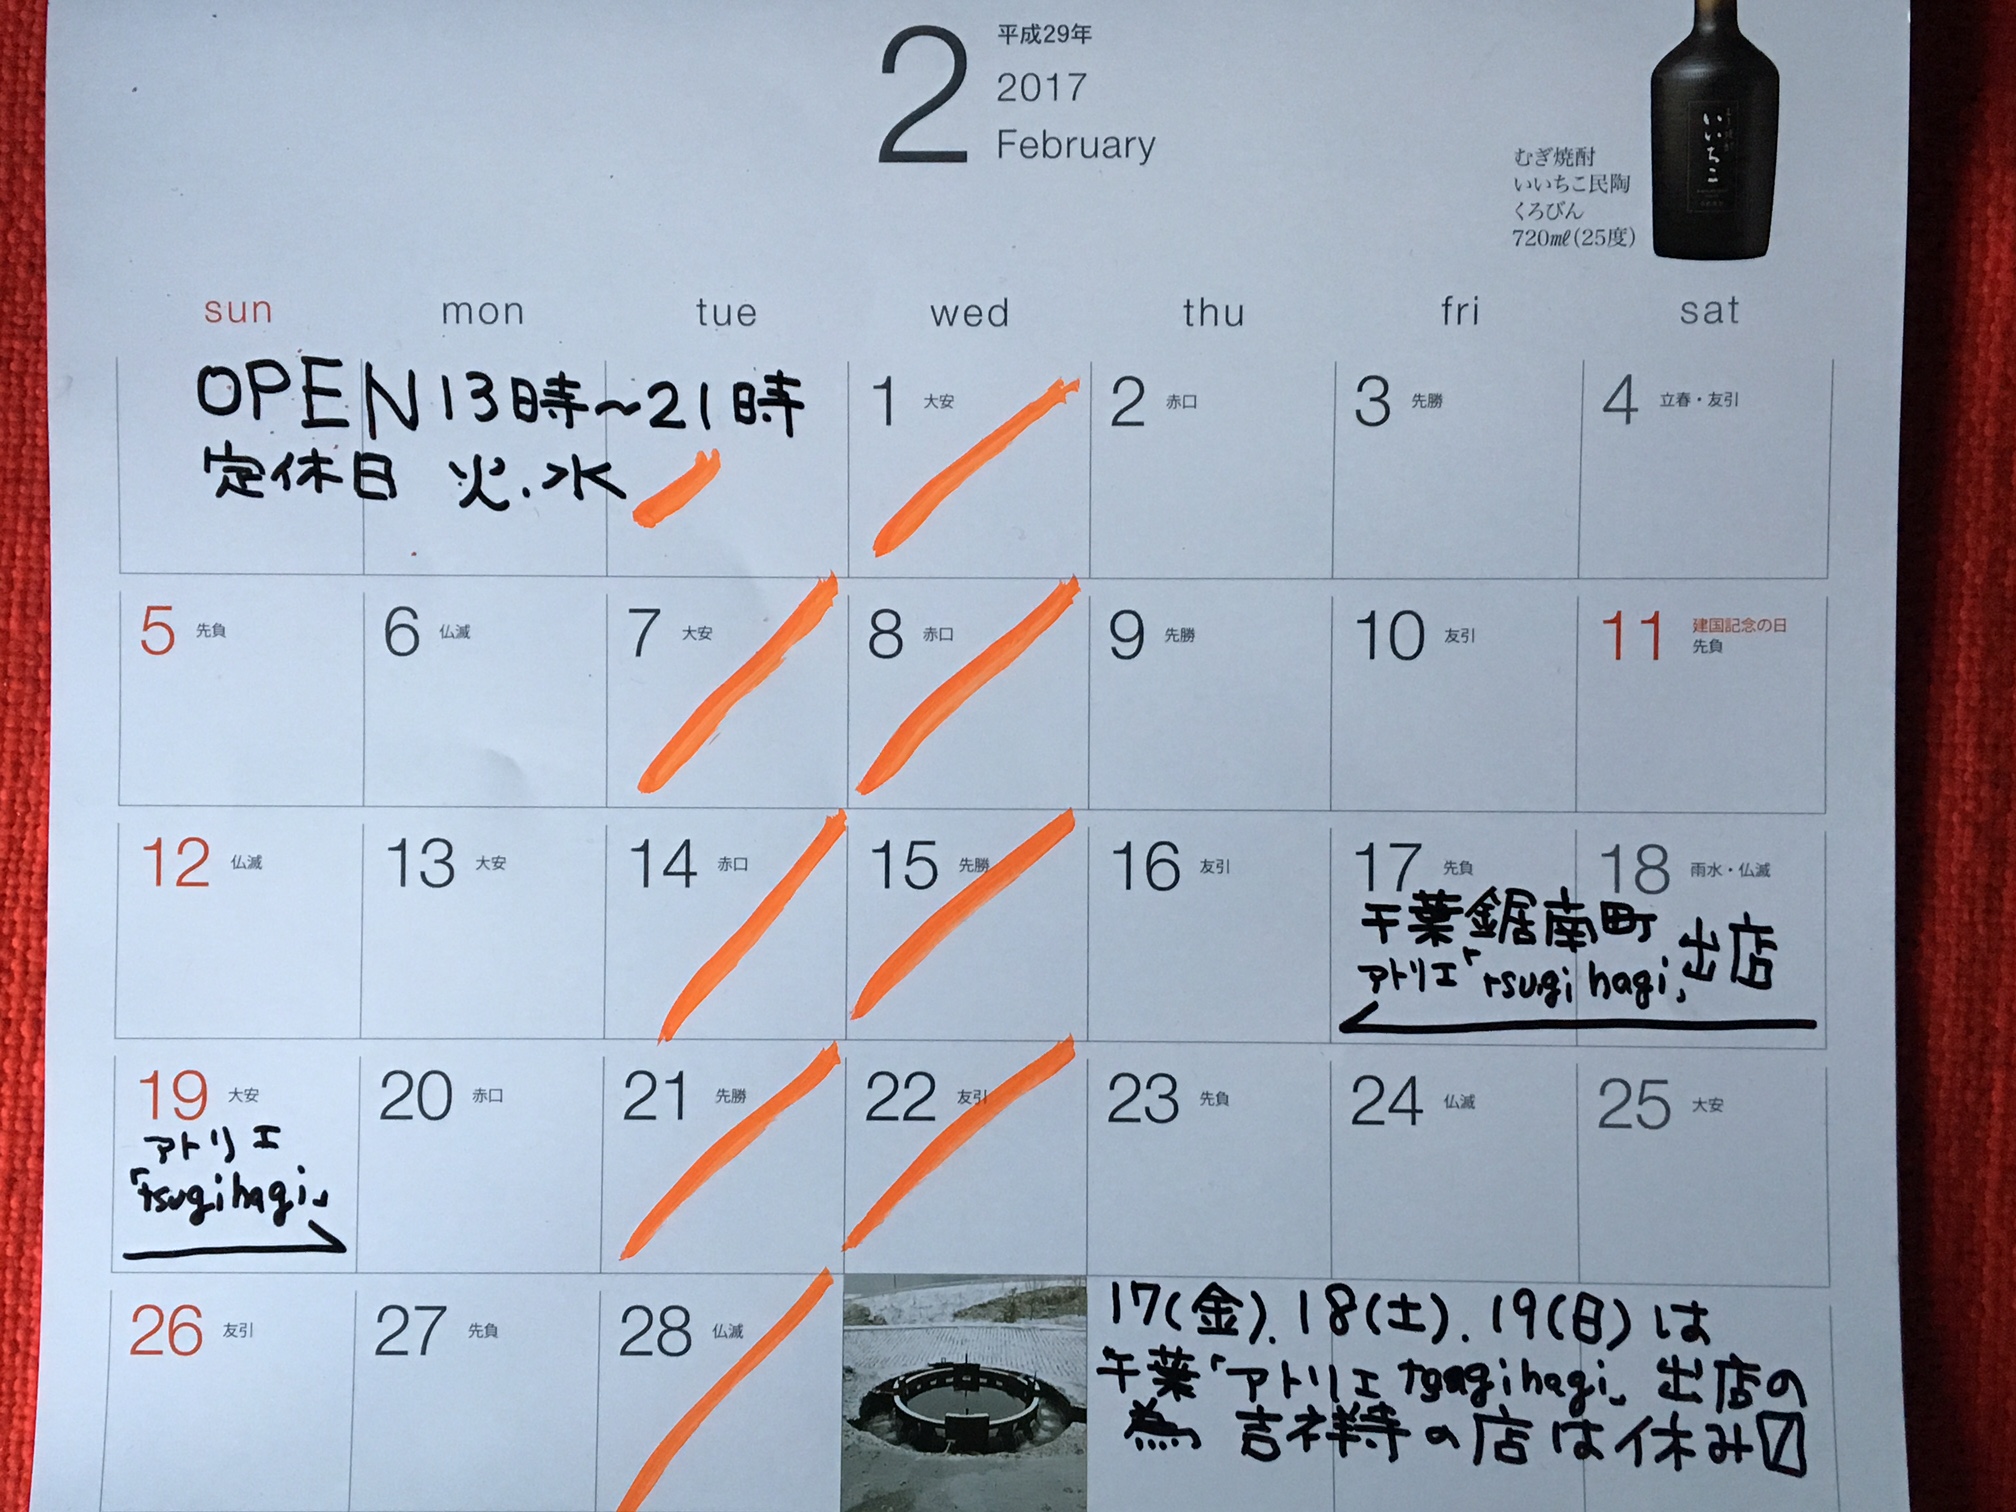 平成29年
2
2017
February
いいちこ
むぎ焼酎
いいちこ民陶
くろびん
720㎖(25度)
sun mon tue wed thu fri sat
OPEN 13時〜21時
定休日 火.水
1 大安 2 赤口 3 先勝 4 立春・友引
5 先負 6 仏滅 7 大安 8 赤口 9 先勝 10 友引 11 建国記念の日 先負
12 仏滅 13 大安 14 赤口 15 先勝 16 友引 17 先負 18 雨水・仏滅
千葉鋸南町 出店
アトリエ「tsugihagi」
19 大安 20 赤口 21 先勝 22 友引 23 先負 24 仏滅 25 大安
アトリエ
「tsugihagi」
26 友引 27 先負 28 仏滅
17(金).18(土).19(日)は
千葉「アトリエtsugihagi」出店の
為 吉祥寺の店は休み